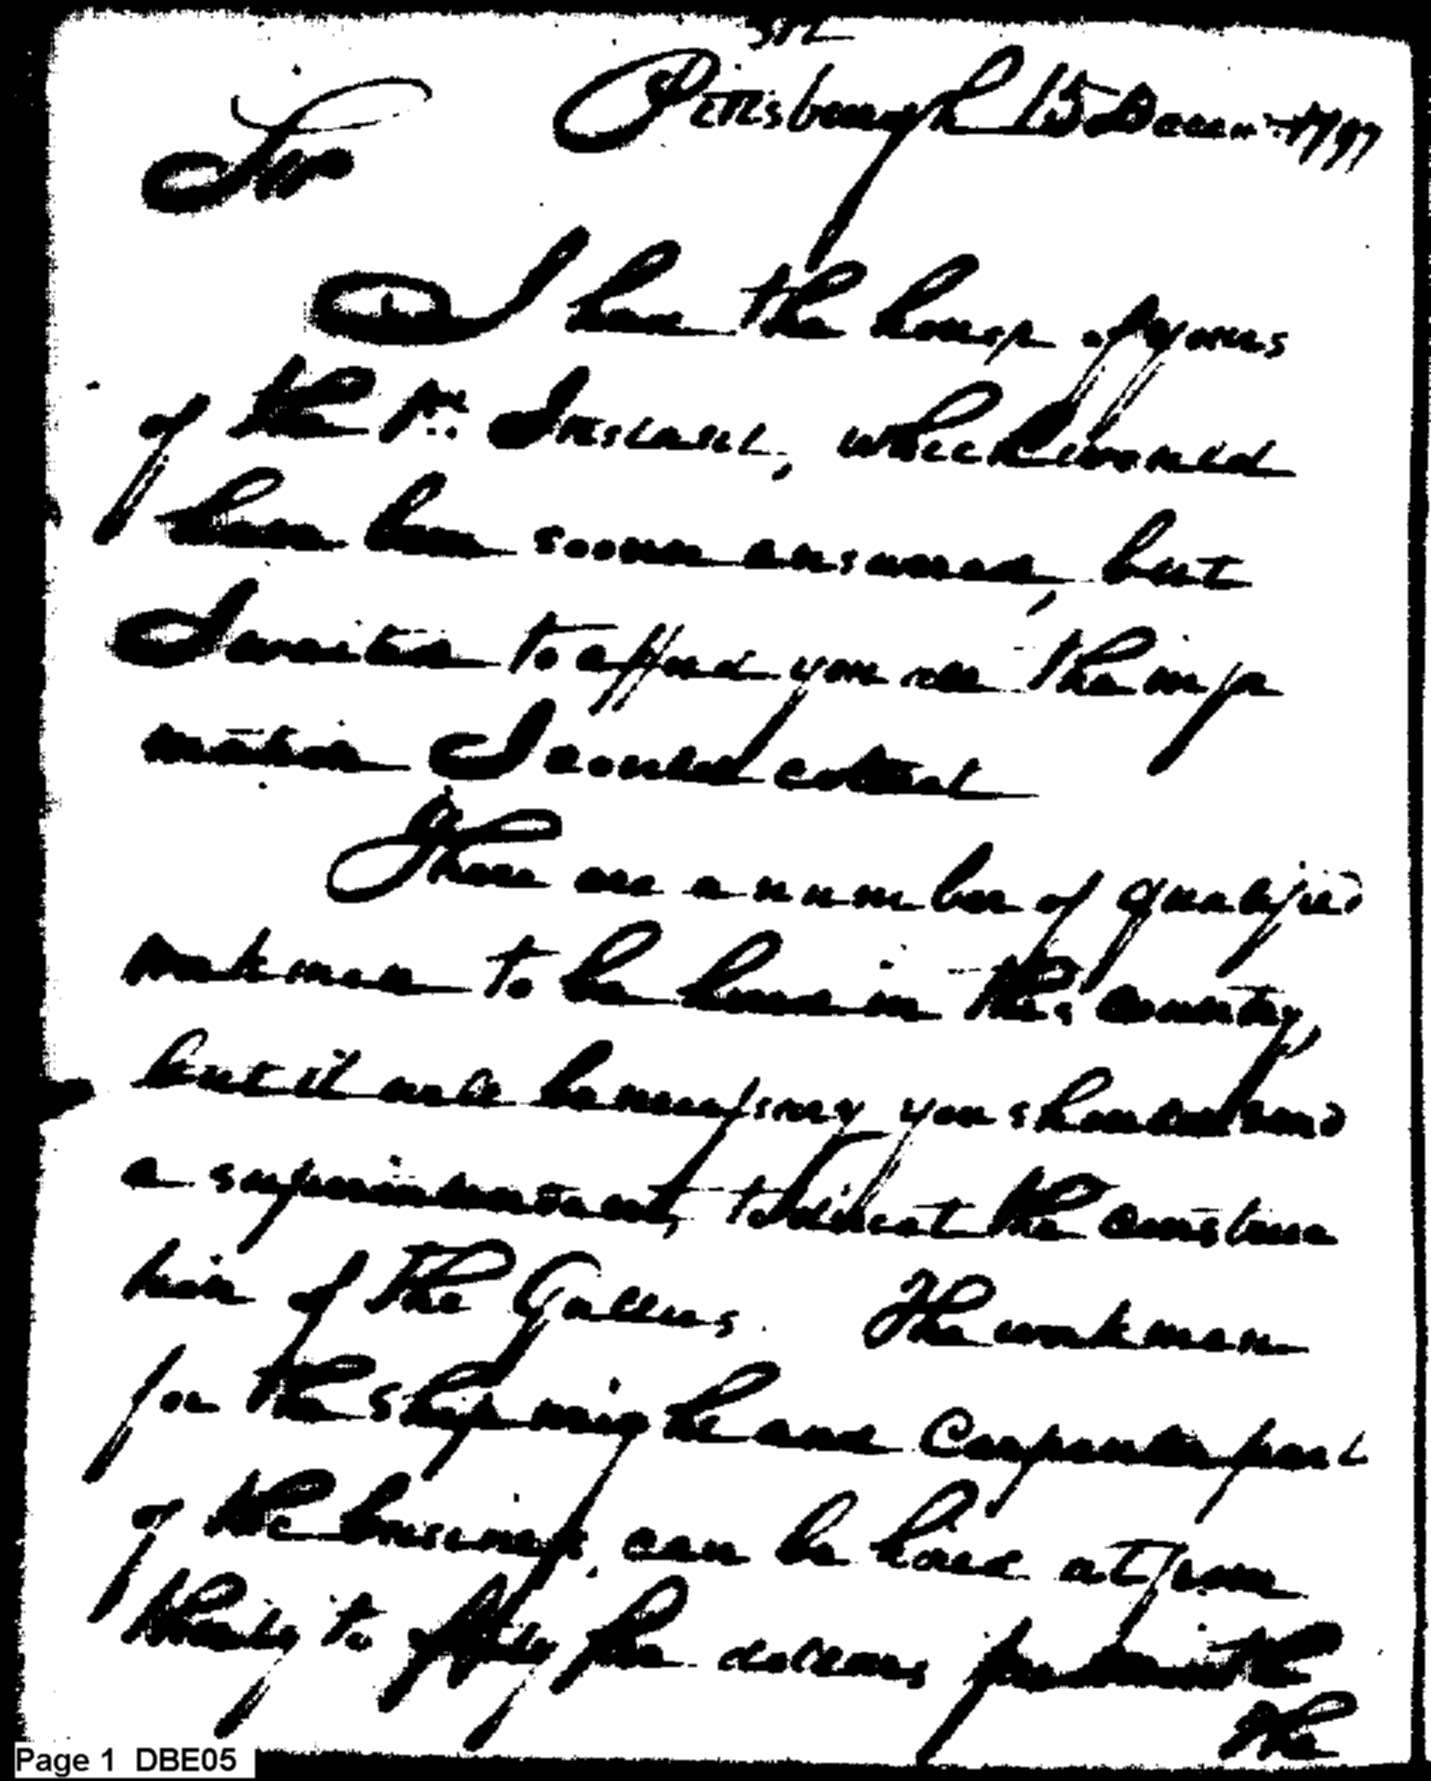 Pittsburgh 15 Decem. 1797
Sir
I have the honor of yours
of the 1st. Instant, which would
have been sooner answered, but
I waited to afford you all the infor
mation I could collect
There are a number of qualified
workmen to be had in this country,
but it will be necessary you should send
a superintendent, to direct the construc
tion of the Gallies. The workmen
for the shipwright and Carpenter part
of the business, can be hired at from
thirty to fifty five dollars per month
The
Page 1 DBE05